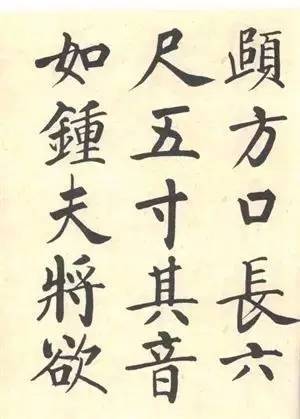 頤方口長六
尺五寸其音
如鍾夫將欲